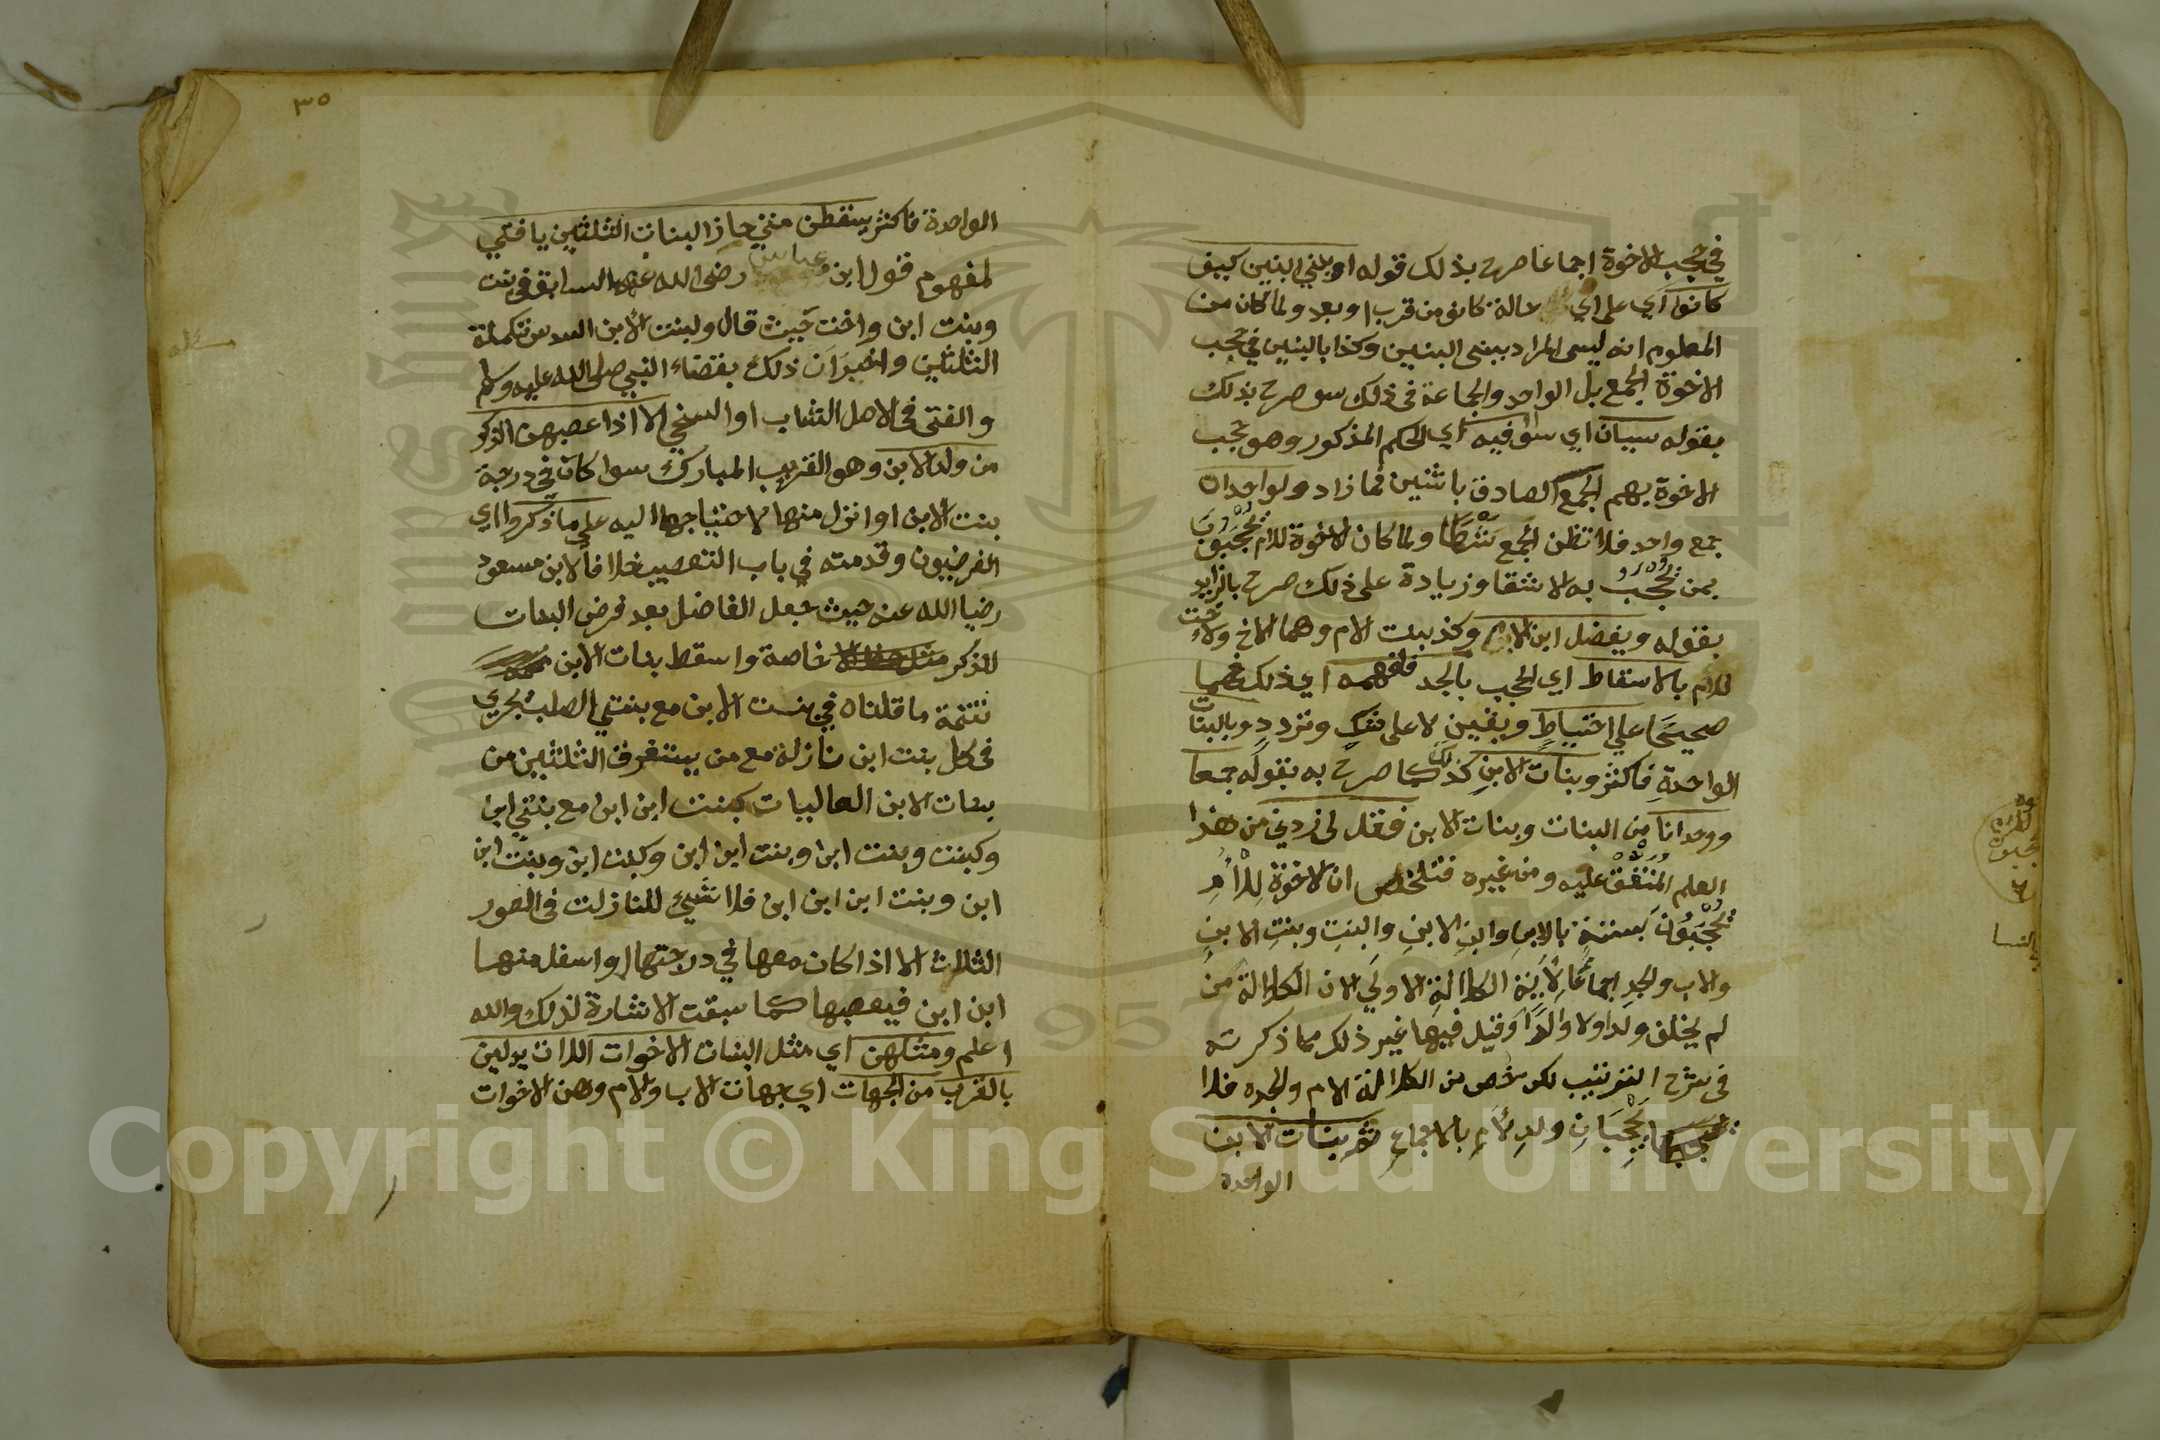 في حجب الاخوة اجماعا صرح بذلك قوله او ببني البنين كيف
كانوا اي على اي حالة كانو من قرب او بعد ولما كان من
المعلوم انه ليس المراد ببنى البنين وكذا بالبنين في حجب
الاخوة الجمع بل الواحد والجماعة فى ذلك سو صرح بذلك
بقوله سيان اي سوا فيه اي الحكم المذكور وهو حجب
الاخوة بهم الجمع الصادق باثنين فما زاد ولواحدان
جمع واحد فلا تظن الجمع شرطا ولما كان الاخوة للام يحجبون
بمن يحجب به الاشقا وزيادة على ذلك صرح بالزايد
بقوله ويفضل ابن الام وكذ ببنت الام وهما الاخ ولاخت
للام بالاسقاط اي الحجب بالجد فافهمه اي ذلك فهما
صحيحا علي احتياط ويقين لا على شك وتردد وبالبنات
الواحدة فاكثر وبنات الابن كذلك كما صرح به بقوله جمعا
ووحدانا من البنات وبنات الابن فقل لى زدني من هذا
العلم المتفق عليه ومن غيره فتلخص ان الاخوة للام
يحجبون بستة بالابن وابن الابن والبنت وبنت الابن
والاب والجد اجماعا لاية الكلالة الاولي لان الكلالة من
لم يخلف ولدا ولا والدا وقيل فيها غير ذلك مما ذكرته
فى شرح الترتيب لكن خص من الكلالة الام والجده فلا
يحجبان ولد الام بالاجماع ثم بنات الابن
الواحدة
بالنسا
٣٥
الواحدة فاكثر يسقطن متي حاز البنات الثلثين يا فتي
لمفهوم قول ابن عباس رضى الله عنهما السابق في بنت
وبنت ابن واخت حيث قال ولبنت الابن السدس تكملة
الثلثين واخبر ان ذلك بقضاء النبي صلى الله عليه وسلم
والفتى فى الاصل الشاب او السخي الا اذا عصبهن الذكر
من ولد الابن وهو القريب المبارك سوا كان في درجة
بنت الابن او انزل منها لاحتياجها اليه على ما ذكروا اي
الفرضيون وقدمته في باب التعصيب خلافا لابن مسعود
رضيا الله عنه حيث جعل الفاضل بعد فرض البنات
للذكر خاصة واسقط بنات الابن
تتمة ما قلناه في بنت الابن مع بنتي الصلب يجري
فى كل بنت ابن نازلة مع من يستغرق الثلثين من
بنات الابن العاليات كبنت ابن ابن مع بنتي ابن
وكبنت وبنت ابن وبنت ابن ابن وكبنت ابن وبنت ابن
ابن وبنت ابن ابن ابن فلا شيئ للنازلت فى الصور
الثلاث الا اذا كان معها في درجتها او اسفل منها
ابن ابن فيعصبها كما سبقت الاشارة لذلك والله
اعلم ومثلهن اي مثل البنات الاخوات اللات يدلين
بالقرب من الجهات اي جهات الاب والام وهن الاخوات
Copyright © King Saud University
1957